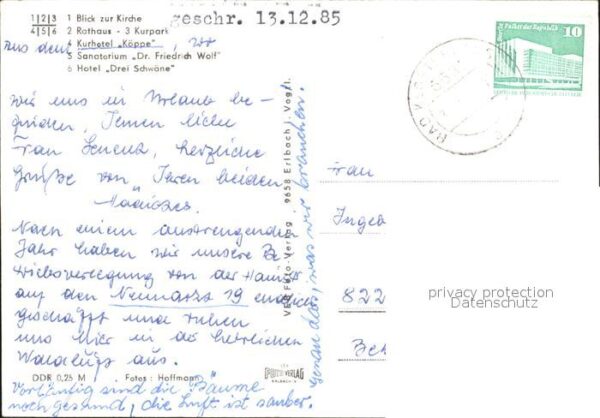 geschr. 13.12.85
1|2|3 1 Blick zur Kirche
4|5|6 2 Rathaus - 3 Kurpark
4 Kurhotel „Köppe"
5 Sanatorium „Dr. Friedrich Wolf"
6 Hotel „Drei Schwäne"
aus dem, wo
wir uns im Urlaub be-
finden, Ihnen liebe
Frau herzliche
Grüße von Ihren beiden
Nach einem anstrengenden
Jahr haben wir unsere Be-
triebsverlegung von der
auf den Neumarkt 19 endlich
geschafft und ruhen
uns hier in der herrlichen
Waldluft aus.
DDR 0,25 M Fotos: Hoffmann
Vorläufig sind die Bäume
noch gesund, die Luft ist sauber.
Genau das, was wir brauchen.
VEB Foto-Verlag 9658 Erlbach i. Vogtl.
FOTO VERLAG
ERLBACH V.
Berlin Palast der Republik
10
DEUTSCHE DEMOKRATISCHE REPUBLIK
BAD
Frau
Ingeb
822
privacy protection
Datenschutz